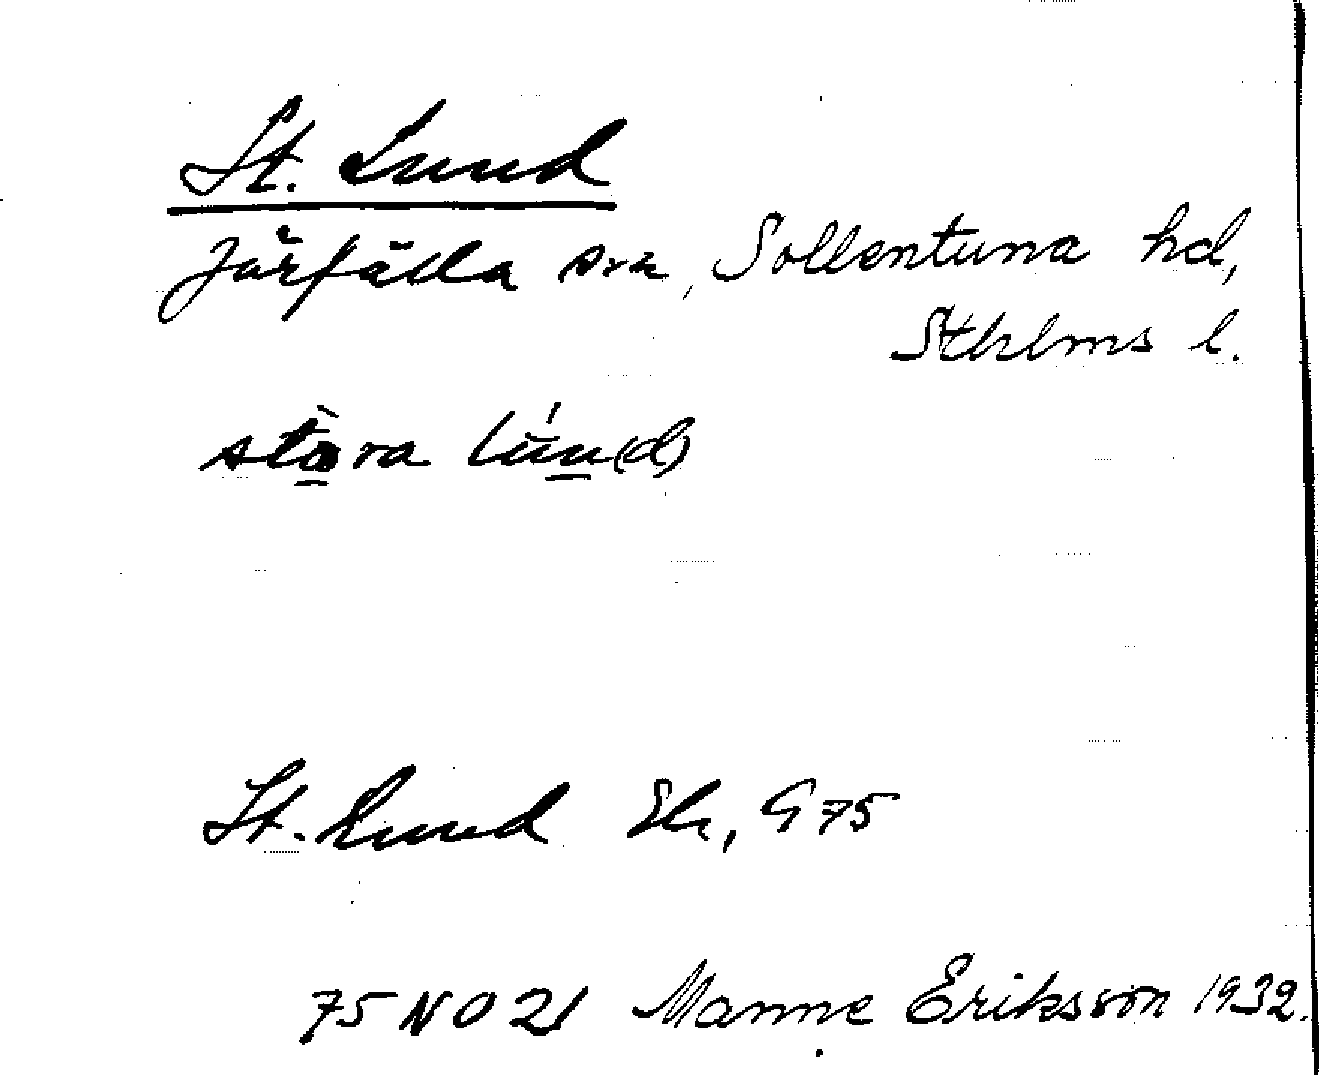 St. Lund
Järfälla sn, Sollentuna hd,
Sthlms l.
stòra lún(d)
St. Lund Ek, G 75
75 NO 21 Manne Eriksson 1932.